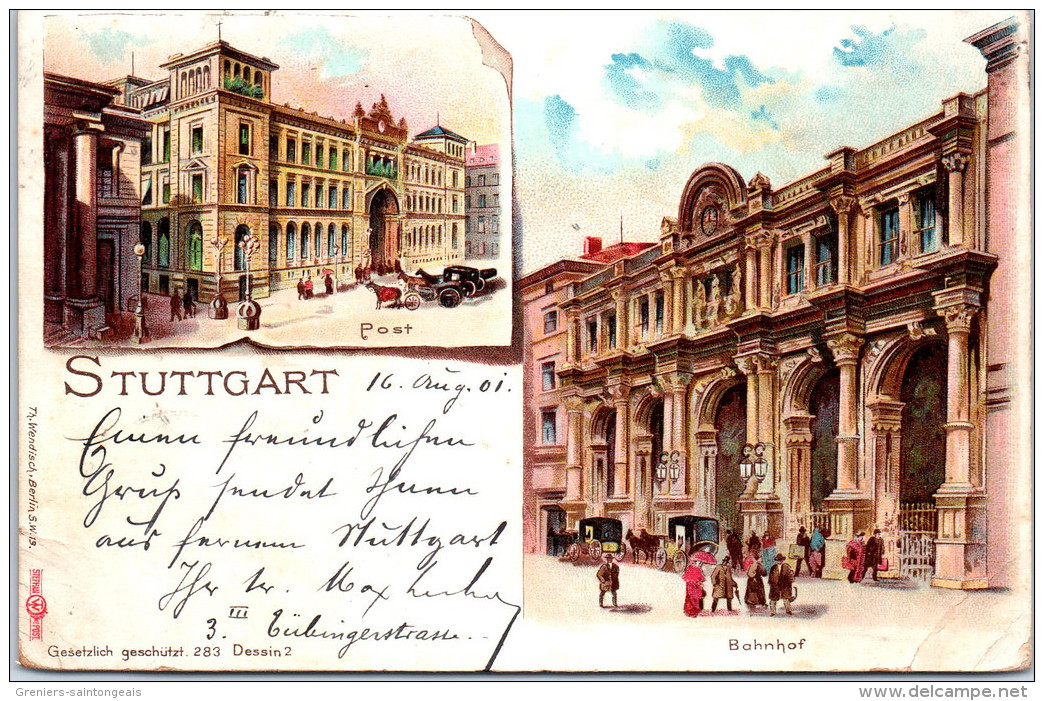 Post
STUTTGART 16. Aug. 01.
Einen freundlichen
Gruß sendet Ihnen
aus fernem Stuttgart
Ihr tr. Max
III
3. Tübingerstrasse..
Th. Wendisch, Berlin S.W.19.
Gesetzlich geschützt. 283 Dessin 2
Bahnhof
Greniers-saintongeais
http://www.delcampe.net